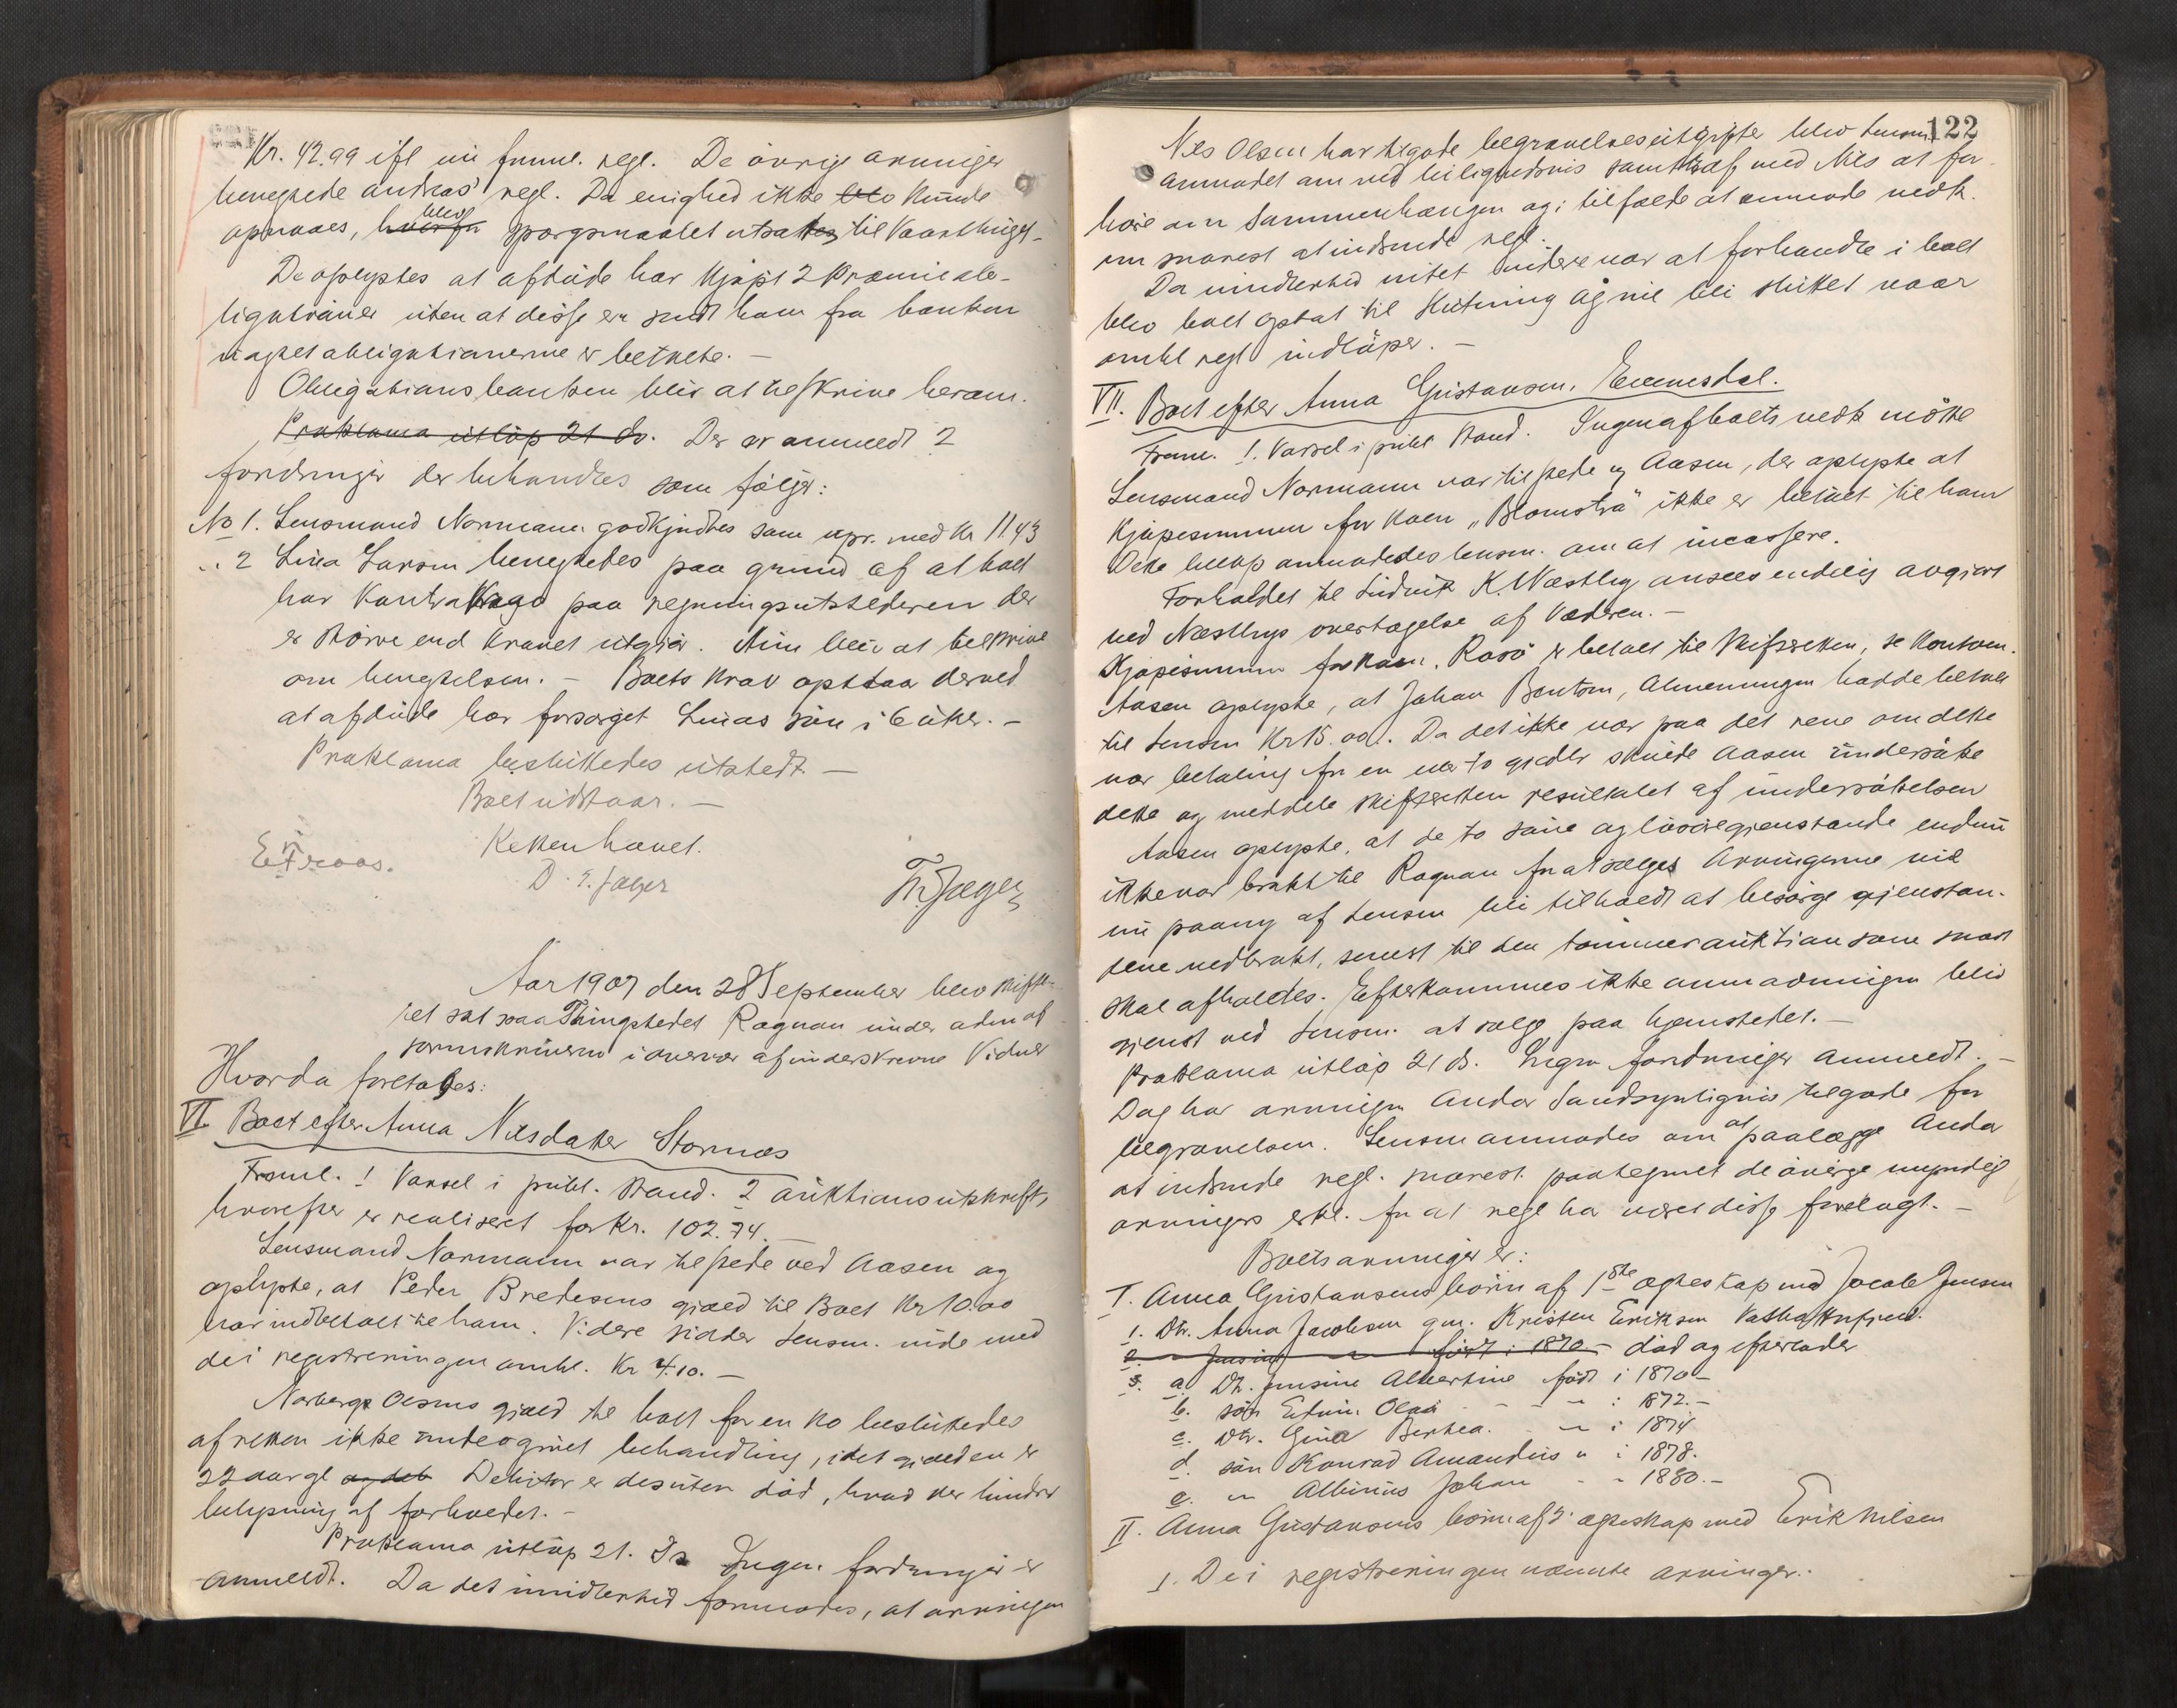 Kr. 42.99 ifl nu freml. regl. De øvrige arvinger
benegtede andreas' regl. Da enighed ikke blev kunde
opnaaes, hvorfor blev spørgsmaalet utsattes til Vaarthinget.
De oplystes at afdøde har kjøpt 2 Præmieobli-
ligationer uten at disse er sendt ham fra banken
uagtet obligationerne er betalte. –
Obligationsbanken blir at tilskrive herom.
Proklama utløp 21 ds. Der er anmeldt 2
fordringer der behandles som følger:
No 1. Lensmand Normann godkjendtes som upr. med Kr 11 43
" 2 Lina Larsen benegtedes paa grund af at boet
har Kontrakrav paa regningsutstederen der
er større end kravet utgjør. Hun blir at tilskrive
om benegtelsen. – Boets krav opstaar derved
at afdøde har forsørget Linas søn i 6 uker. –
Proklama besluttedes utstedt. –
Boet utstaar. –
Retten hævet.
E. Troos.
D. E. Jæger
Th. Jæger
Aar 1907 den 28 September blev skifte-
ret sat paa Thingstedet Rognan under adm af
sorenskriveren i overvær af underskrevne Vidner
Hvorda foretages:
VI. Boet efter Anna Nilsdatter Stornes
Freml. 1 Varsel i publ. stand. 2 auktionsutskrift,
hvorefter er realiseret for Kr. 102.74. –
Lensmand Normann var tilstede ved Aasen og
oplyste, at Peder Bredesens gjæld til Boet Kr 10.00
var indbetalt til ham. Videre sidder lensm. inde med
de i registreringen omhl. Kr 4.10. –
Norberg Olsens gjæld til boet for en ko besluttedes
af retten ikke undergivet behandling, idet gjælden er
22 aar gl og deb Debitor er desuten død, hvad der hindrer
belysning af forholdet. –
Proklama utløp 21. Ds Ingen fordringer er
anmeldt. Da det imidlertid formodes, at arvingen
122
Nils Olsen har tilgode begravelsesutgifter blev lensm.
anmodet om ved leilighed samtale med Nils at for-
høre om sammenhængen og i tilfælde at anmode vedk.
om snarest at indsende regl.
Da imidlertid intet videre var at forhandle i boet
blev boet optat til slutning og vil bli sluttet naar
omhl regl indløper. –
VII. Boet efter Anna Gustavsen, Evenesdal.
Freml. 1. Varsel i publ stand. Ingen af boets vedk møtte
Lensmand Normann var tilstede v Aasen, der oplyste at
Kjøpesummen for koen "Blomstra" ikke er betalt til ham
Dette beløp anmodedes lensm. om at incassere.
Forholdet til Ludvik K. Næstby ansees endelig avgjort
ved Næstbys overtagelse af Væderen. –
Kjøpesummen for koen. Rosø er betalt til Skifteretten, se kontoen.
Aasen oplyste, at Johan Bentsen, Almenningen hadde betalt
til lensm Kr 15.00. Da det ikke var paa det rene om dette
var betaling for en eller to gjeder skulde Aasen undersøke
dette og meddele skifteretten resultatet af undersøkelsen
Aasen oplyste, at de to sauer og løsøregjenstande endnu
ikke var bragt til Rognan for at sælges Arvingerne vil
nu paany af lensm bli tilholdt at besørge gjenstan-
dene nedbragt, senest til den tømmerauktion som snart
skal afholdes. Efterkommes ikke anmodningen blir
gjenst ved lensm. at sælge paa hjemstedet. –
Proklama utløp 21 ds. Ingen fordringer anmeldt. –
Dog har arvingen Andor sandsynligvis tilgode for
begravelsen. Lensm anmodes om at paalægge Andor
at indsende regl. snarest. paategnet de øvrige myndig
arvingers erkl. for at regl ha været disse forelagt. –
Boets arvinger er:
I. Anna Gustavsens børn af 1ste ægteskap med Jacob Jensen
1. Dtr. Anna Jacobsen gm. Kristen Eriksen
2. Jensine født i 1870 – død og efterlader
3. a Dtr. Jensine Albertine født i 1870 –
b. søn Edvin Olai – " – i 1872. –
c. Dtr. Gina Berthea. – " i 1874
d. søn Konrad Amandus " i 1878.
e. " Albinus Johan – " 1880. –
II. Anna Gustavsens børn af 2' ægteskap med Erik Nilsen
1. De i registreringen nævnte arvinger.